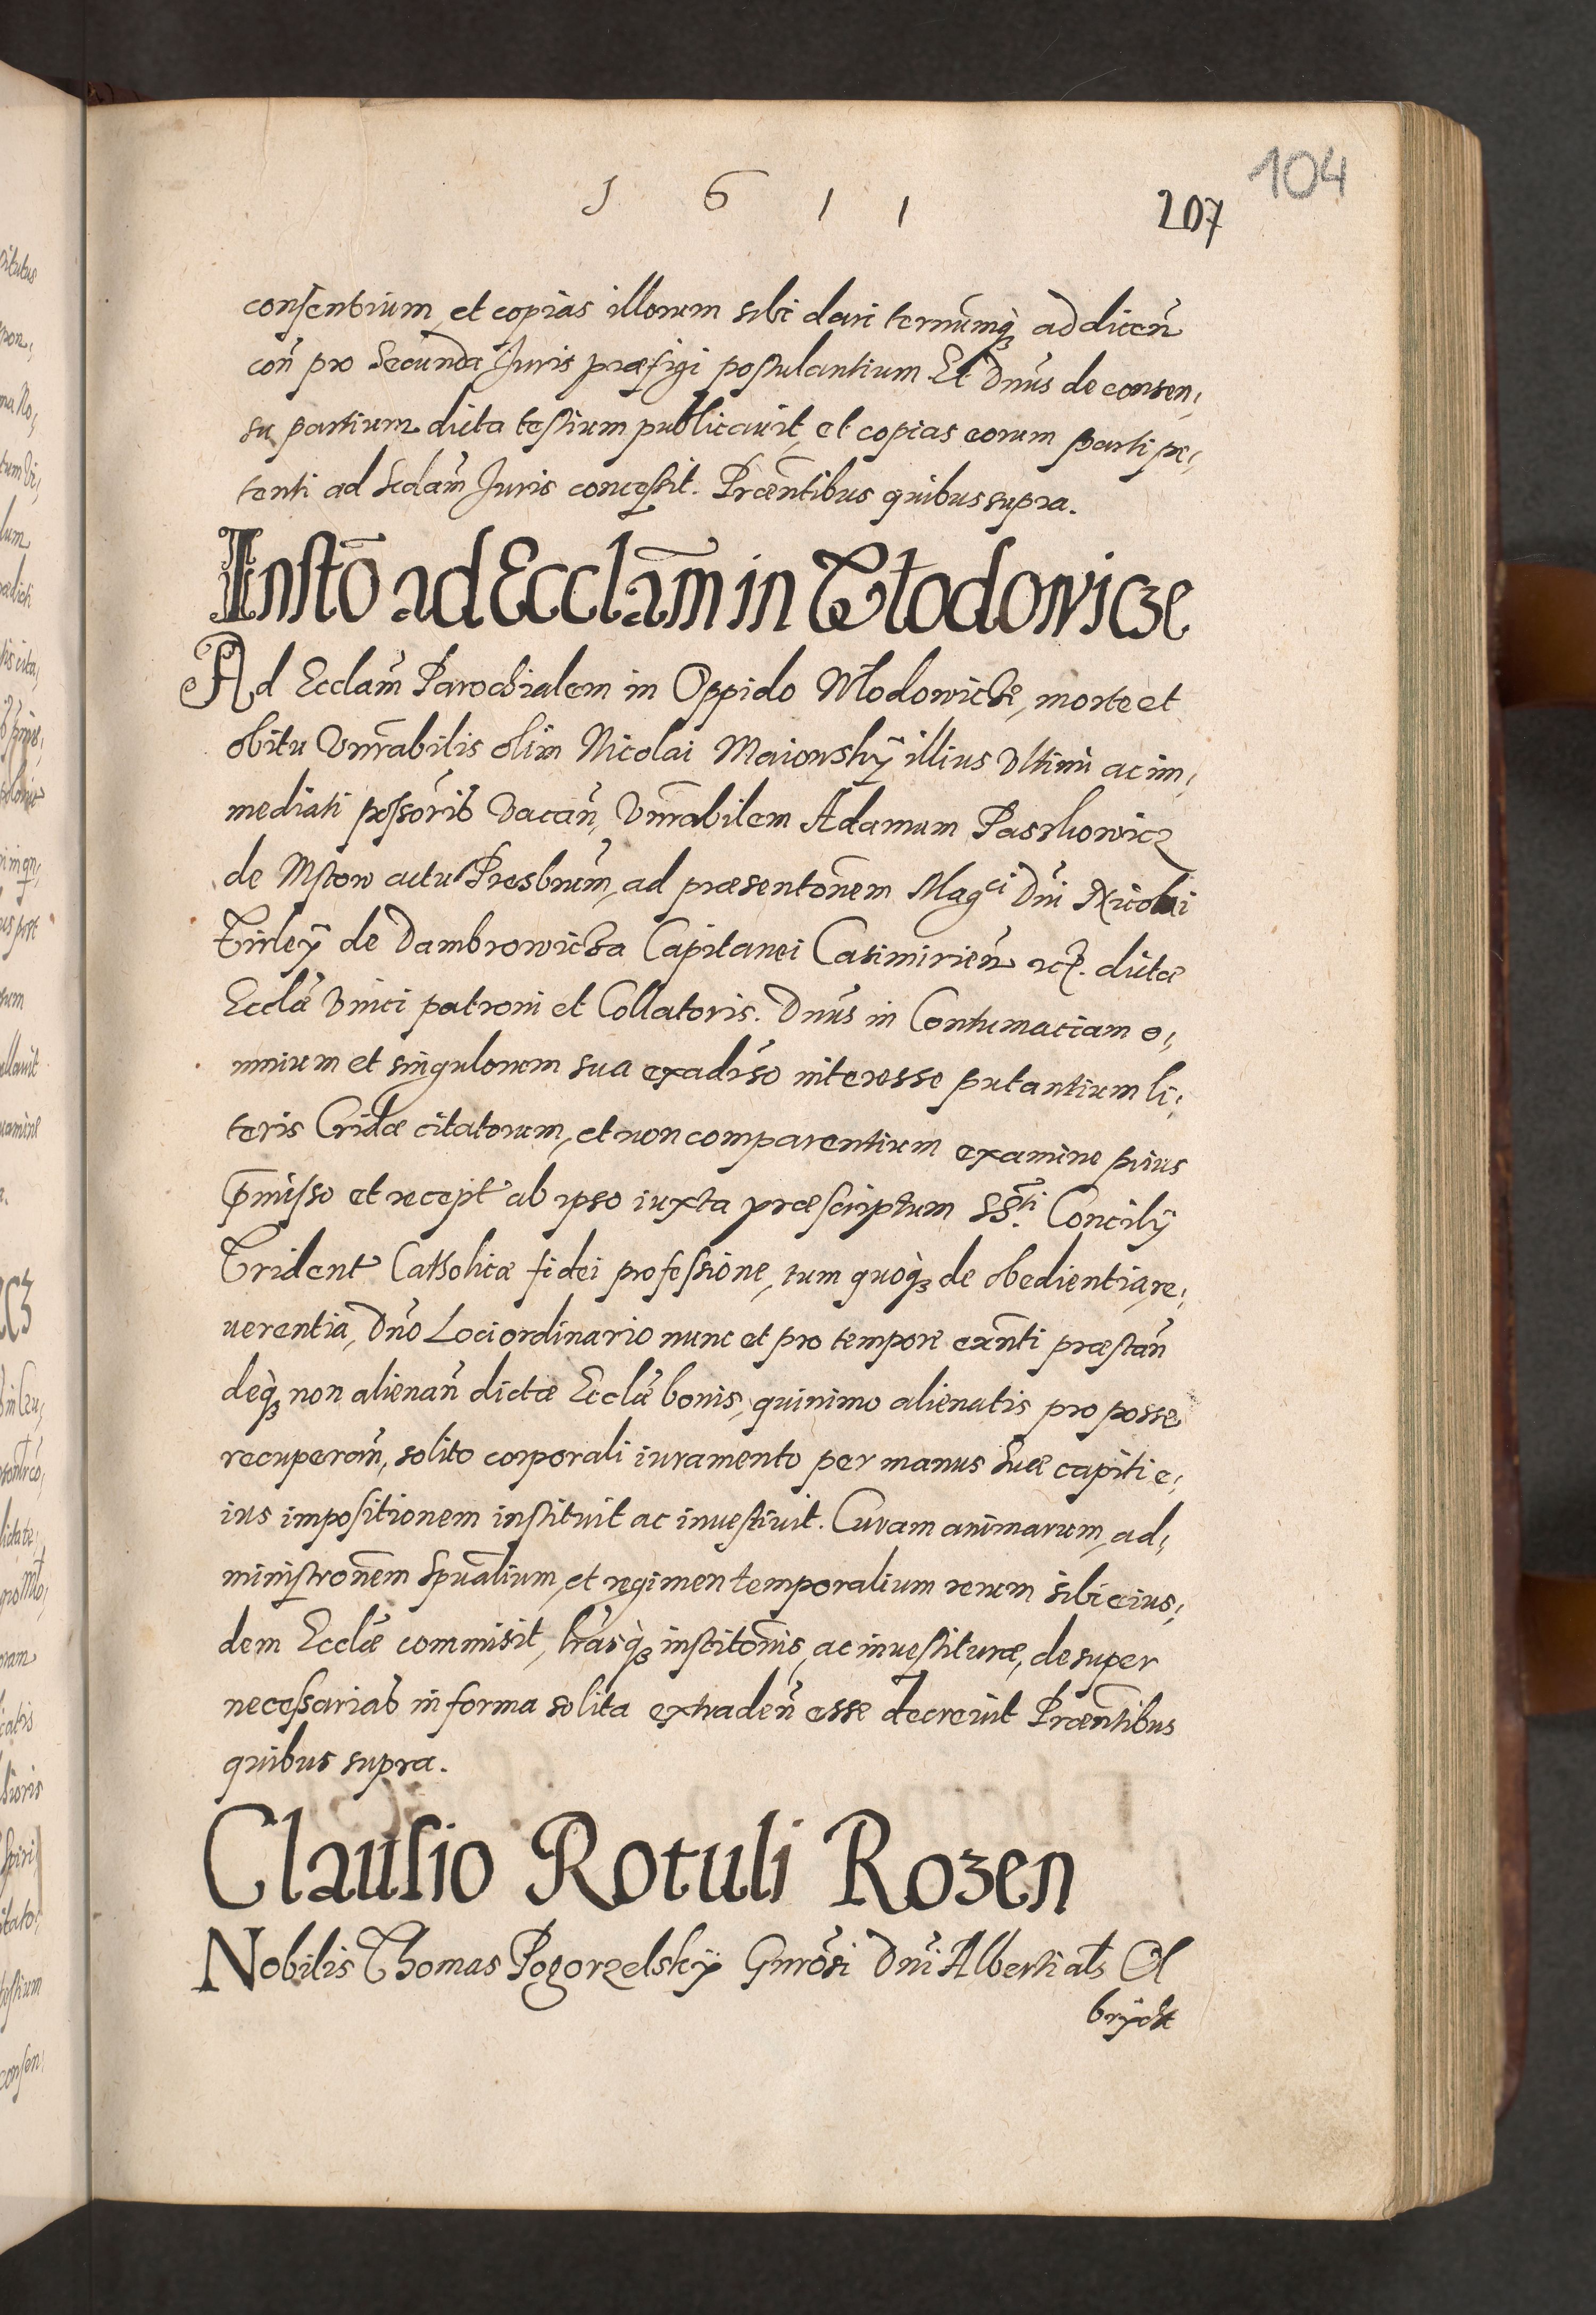 104
1 6 1 1
207
consentium et copias illorum sibi dari terminumq̀ ad dicen̄
con̄ pro Secunda Juris præfigi postulantium Et Dnūs de consen,
su partium dicta testium publicauit, et copias eorum parti pe,
tenti ad Scdam̄ Juris concessit. Præntibus quibus supra.
Instō ad Ecclam̄ in Włodowicze
Ad Ecclam̄ Parochialem in Oppido Włodowicze, morte et
obitu Vnrabilis olim Nicolai Maiowskÿ illius Vltimi ac im,
mediati possōris Vacan̄, Vnrabilem Adamum Paszkowicz
de Mstow actu Presbrum̄, ad præsentōnem Magci Dnī Nicolai
Firleÿ de Dambrowicza Capitanei Casimirien̄ etc. dictæ
Ecclǣ Vnici patroni et Collatoris. Dnūs in Contumaciam o,
mnium et singulorum sua exadverso interesse putantium li,
teris Cridæ citatorum, et non comparentium examine prius
p̄misso et recept' ab ipso iuxta præscriptum SSti Concilÿ
Trident' Catholicæ fidei professione, tum quoq̀ de obedientia, re,
uerentia, Dnō Loci ordinario nunc et pro tempore exnti præstan̄
deq̀ non alienan̄ dictæ Ecclǣ bonis, quinimo alienatis pro posse
recuperan̄, solito corporali iuramento per manus suæ capiti e,
ius impositionem instituit ac inuestiuit. Curam animarum, ad,
ministrōnem Spualium, et regimen temporalium rerum sibi eius,
dem Ecclǣ commisit, lrasq̀ institōnis, ac inuestituræ, desuper
necessarias in forma solita extraden̄ esse decreuit Præntibus
quibus supra.
Clausio Rotuli Rozen
Nobilis Thomas Pogorzelskÿ Gnrosi Dnī Alberti als Ol
brÿcht